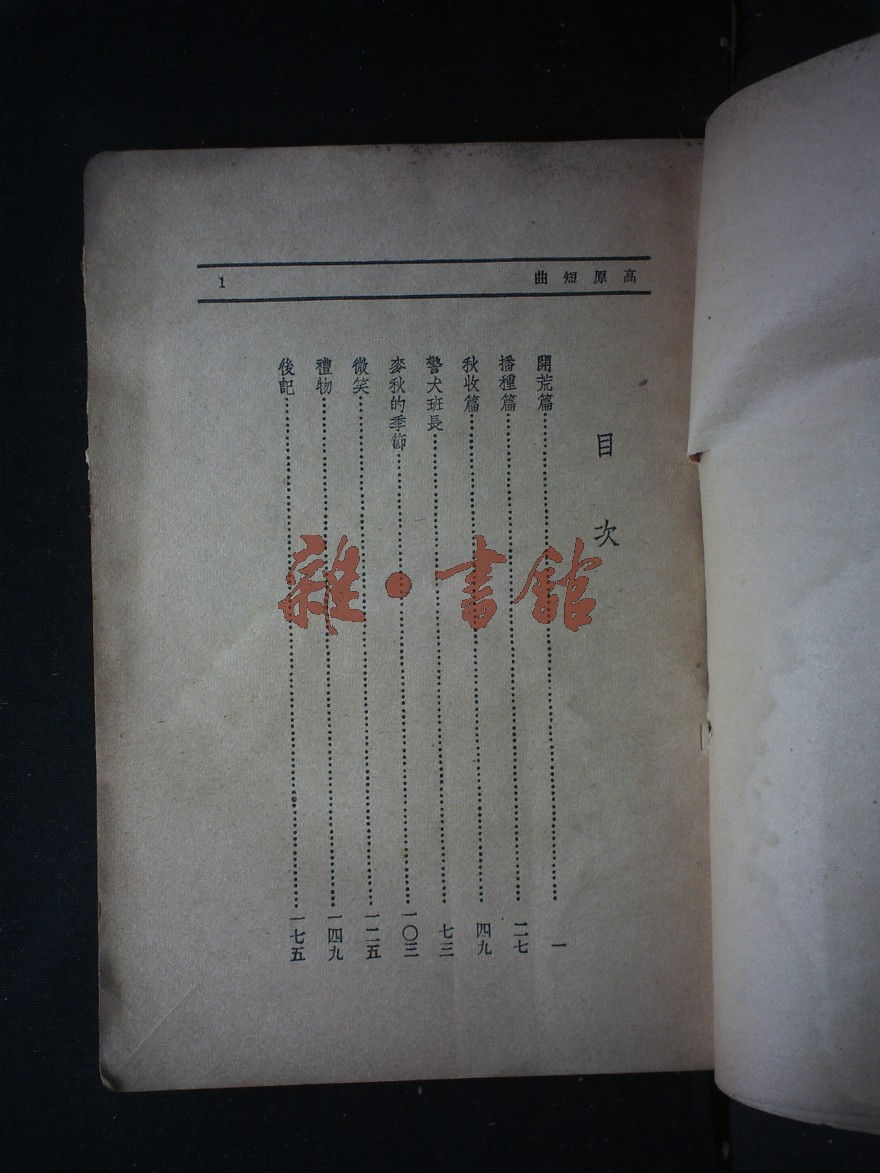 高原短曲 1
目次
開荒篇……一
播種篇……二七
秋收篇……四九
警犬班長……七三
麥秋的季節……一〇三
微笑……一二五
禮物……一四九
後記……一七五
雜·書館